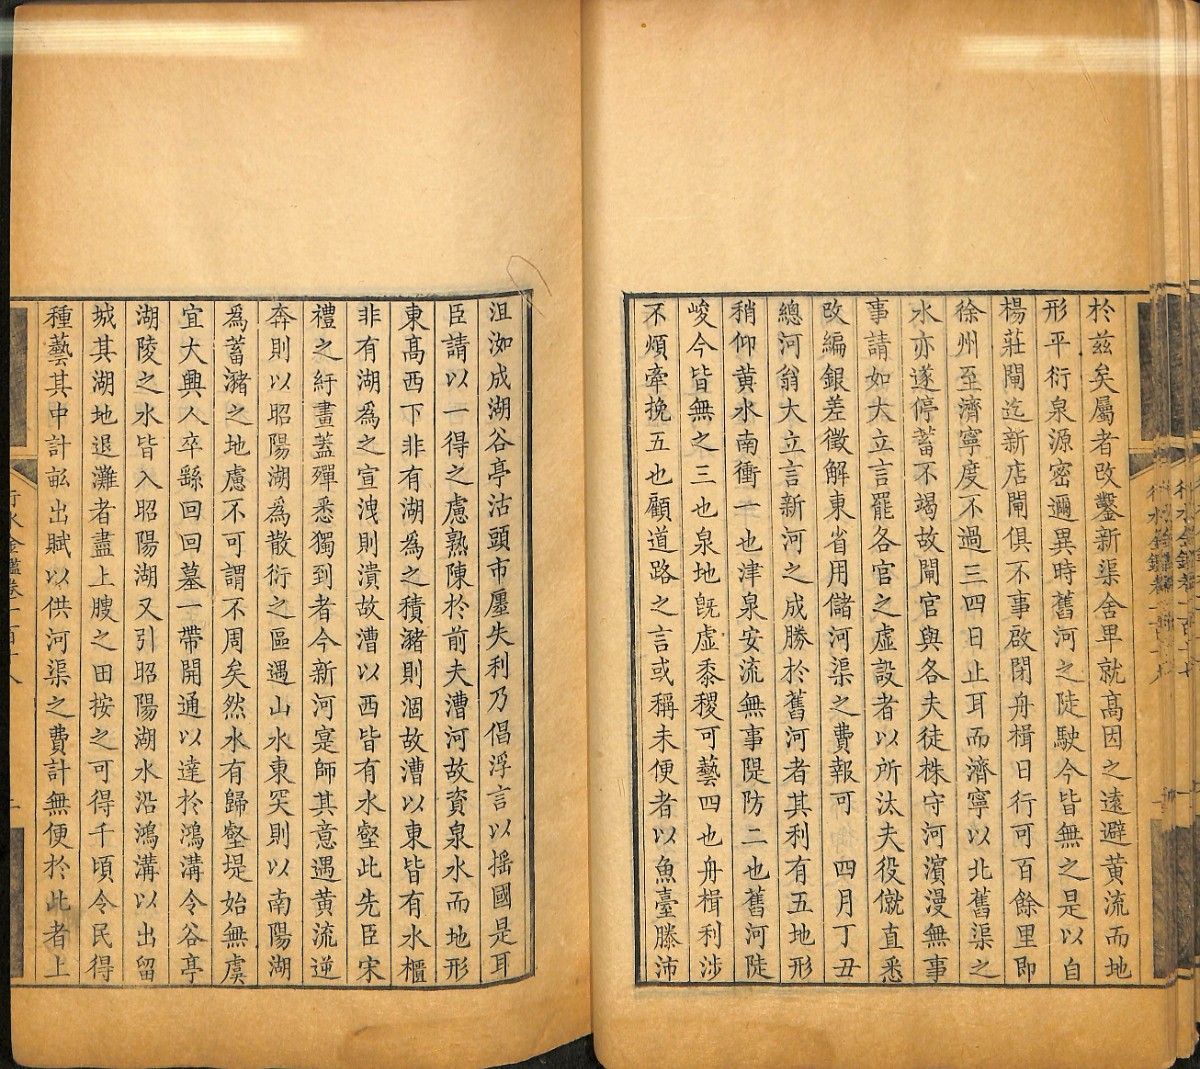 於兹矣屬者改鑿新渠舍卑就高因之遠避黄流而地
形平衍泉源密邇異時舊河之陡駛今皆無之是以自
楊莊閘迄新店閘俱不事啟閉舟楫日行可百餘里即
徐州至濟寧度不過三四日止耳而濟寧以北舊渠之
水亦遂停蓄不竭故閘官與各夫徒株守河濵漫無事
事請如大立言罷各官之虛設者以所汰夫役僦直悉
改編銀差徵解東省用儲河渠之費報可 四月丁丑
總河翁大立言新河之成勝於舊河者其利有五地形
稍仰黄水南衝一也津泉安流無事隄防二也舊河陡
峻今皆無之三也泉地旣虛黍稷可藝四也舟楫利涉
不煩牽挽五也顧道路之言或稱未便者以魚臺滕沛
沮洳成湖谷亭沽頭市廛失利乃倡浮言以搖國是耳
臣請以一得之慮熟陳於前夫漕河故資泉水而地形
東髙西下非有湖為之積瀦則涸故漕以東皆有水櫃
非有湖為之宣洩則潰故漕以西皆有水壑此先臣宋
禮之紆畫蓋殫悉獨到者今新河寔師其意遇黄流逆
奔則以昭陽湖爲散衍之區遇山水東突則以南陽湖
爲蓄瀦之地慮不可謂不周矣然水有歸壑堤始無虞
宜大興人卒繇回回墓一帶開通以達於鴻溝令谷亭
湖陵之水皆入昭陽湖又引昭陽湖水沿鴻溝以出留
城其湖地退灘者盡上腴之田按之可得千頃令民得
種藝其中計畝出賦以供河渠之費計無便於此者上
行水金鑑卷一百十八
二